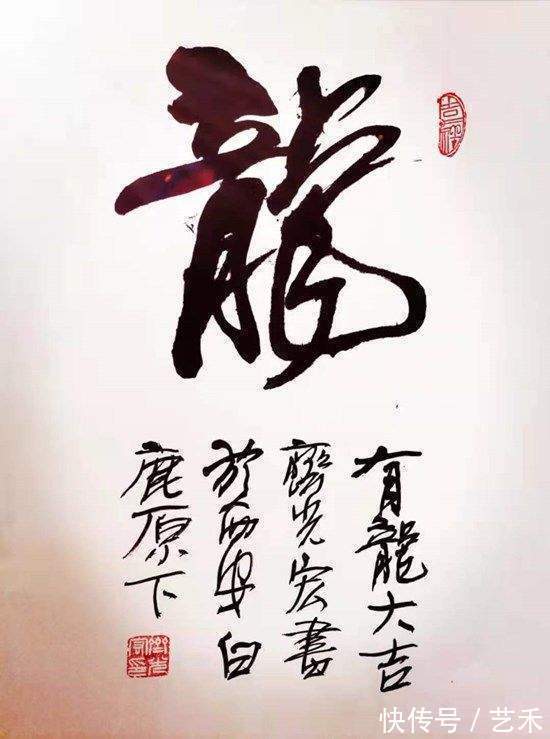 龍
吉祥
有龍大吉
光宏書
於西安白
鹿原下
快传号/艺禾